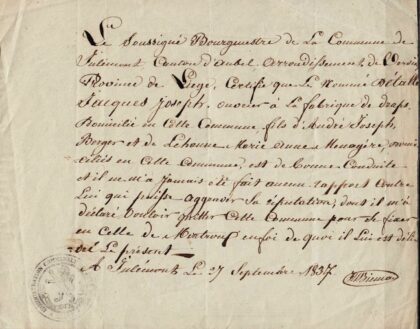 Le Soussigné Bourgmestre de La Commune de
Julémont Canton d'aubel arrondissement de Verviers
Province de Liège, Certifie que Le Nommé
Jacques Joseph, ouvrier à La fabrique de draps,
Domicilié en Cette Commune fils d'André Joseph,
Berger et de Lehoune Marie anne Menagère,
en Cette Commune, est de bonne Conduite
et il ne m'a Jamais été fait aucun rapport Contre
Lui qui puisse aggraver sa réputation, dans il m'a
déclaré Vouloir quitter Cette Commune pour se fixer
en Celle de en foi de quoi il Lui est
Le présent
A Julémont Le 27 Septembre 1837